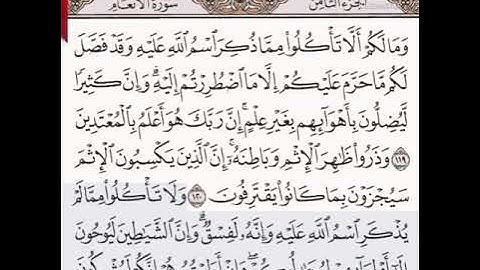 سورة الأنعام
الجزء الثامن
وَمَا لَكُمْ أَلَّا تَأْكُلُوا۟ مِمَّا ذُكِرَ ٱسْمُ ٱللَّهِ عَلَيْهِ وَقَدْ فَصَّلَ
لَكُم مَّا حَرَّمَ عَلَيْكُمْ إِلَّا مَا ٱضْطُرِرْتُمْ إِلَيْهِ ۗ وَإِنَّ كَثِيرًا
لَّيُضِلُّونَ بِأَهْوَآئِهِم بِغَيْرِ عِلْمٍ ۗ إِنَّ رَبَّكَ هُوَ أَعْلَمُ بِٱلْمُعْتَدِينَ
١١٩ وَذَرُوا۟ ظَٰهِرَ ٱلْإِثْمِ وَبَاطِنَهُۥٓ ۚ إِنَّ ٱلَّذِينَ يَكْسِبُونَ ٱلْإِثْمَ
سَيُجْزَوْنَ بِمَا كَانُوا۟ يَقْتَرِفُونَ ١٢٠ وَلَا تَأْكُلُوا۟ مِمَّا لَمْ
يُذْكَرِ ٱسْمُ ٱللَّهِ عَلَيْهِ وَإِنَّهُۥ لَفِسْقٌ ۗ وَإِنَّ ٱلشَّيَٰطِينَ لَيُوحُونَ